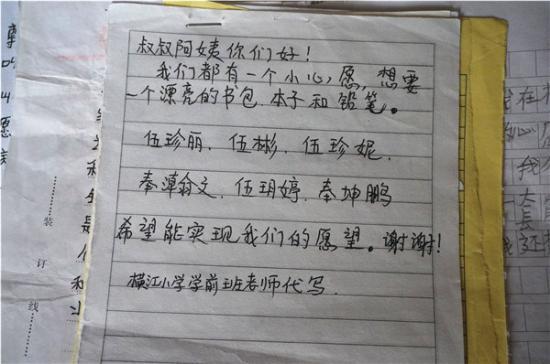 叔叔阿姨你们好!
我们都有一个小心愿,想要
一个漂亮的书包.本子和铅笔。
伍珍丽.伍彬.伍珍妮.
秦潭翁文.伍玥婷.秦坤鹏
希望能实现我们的愿望。谢谢!
横江小学学前班老师代写.
装
订
线